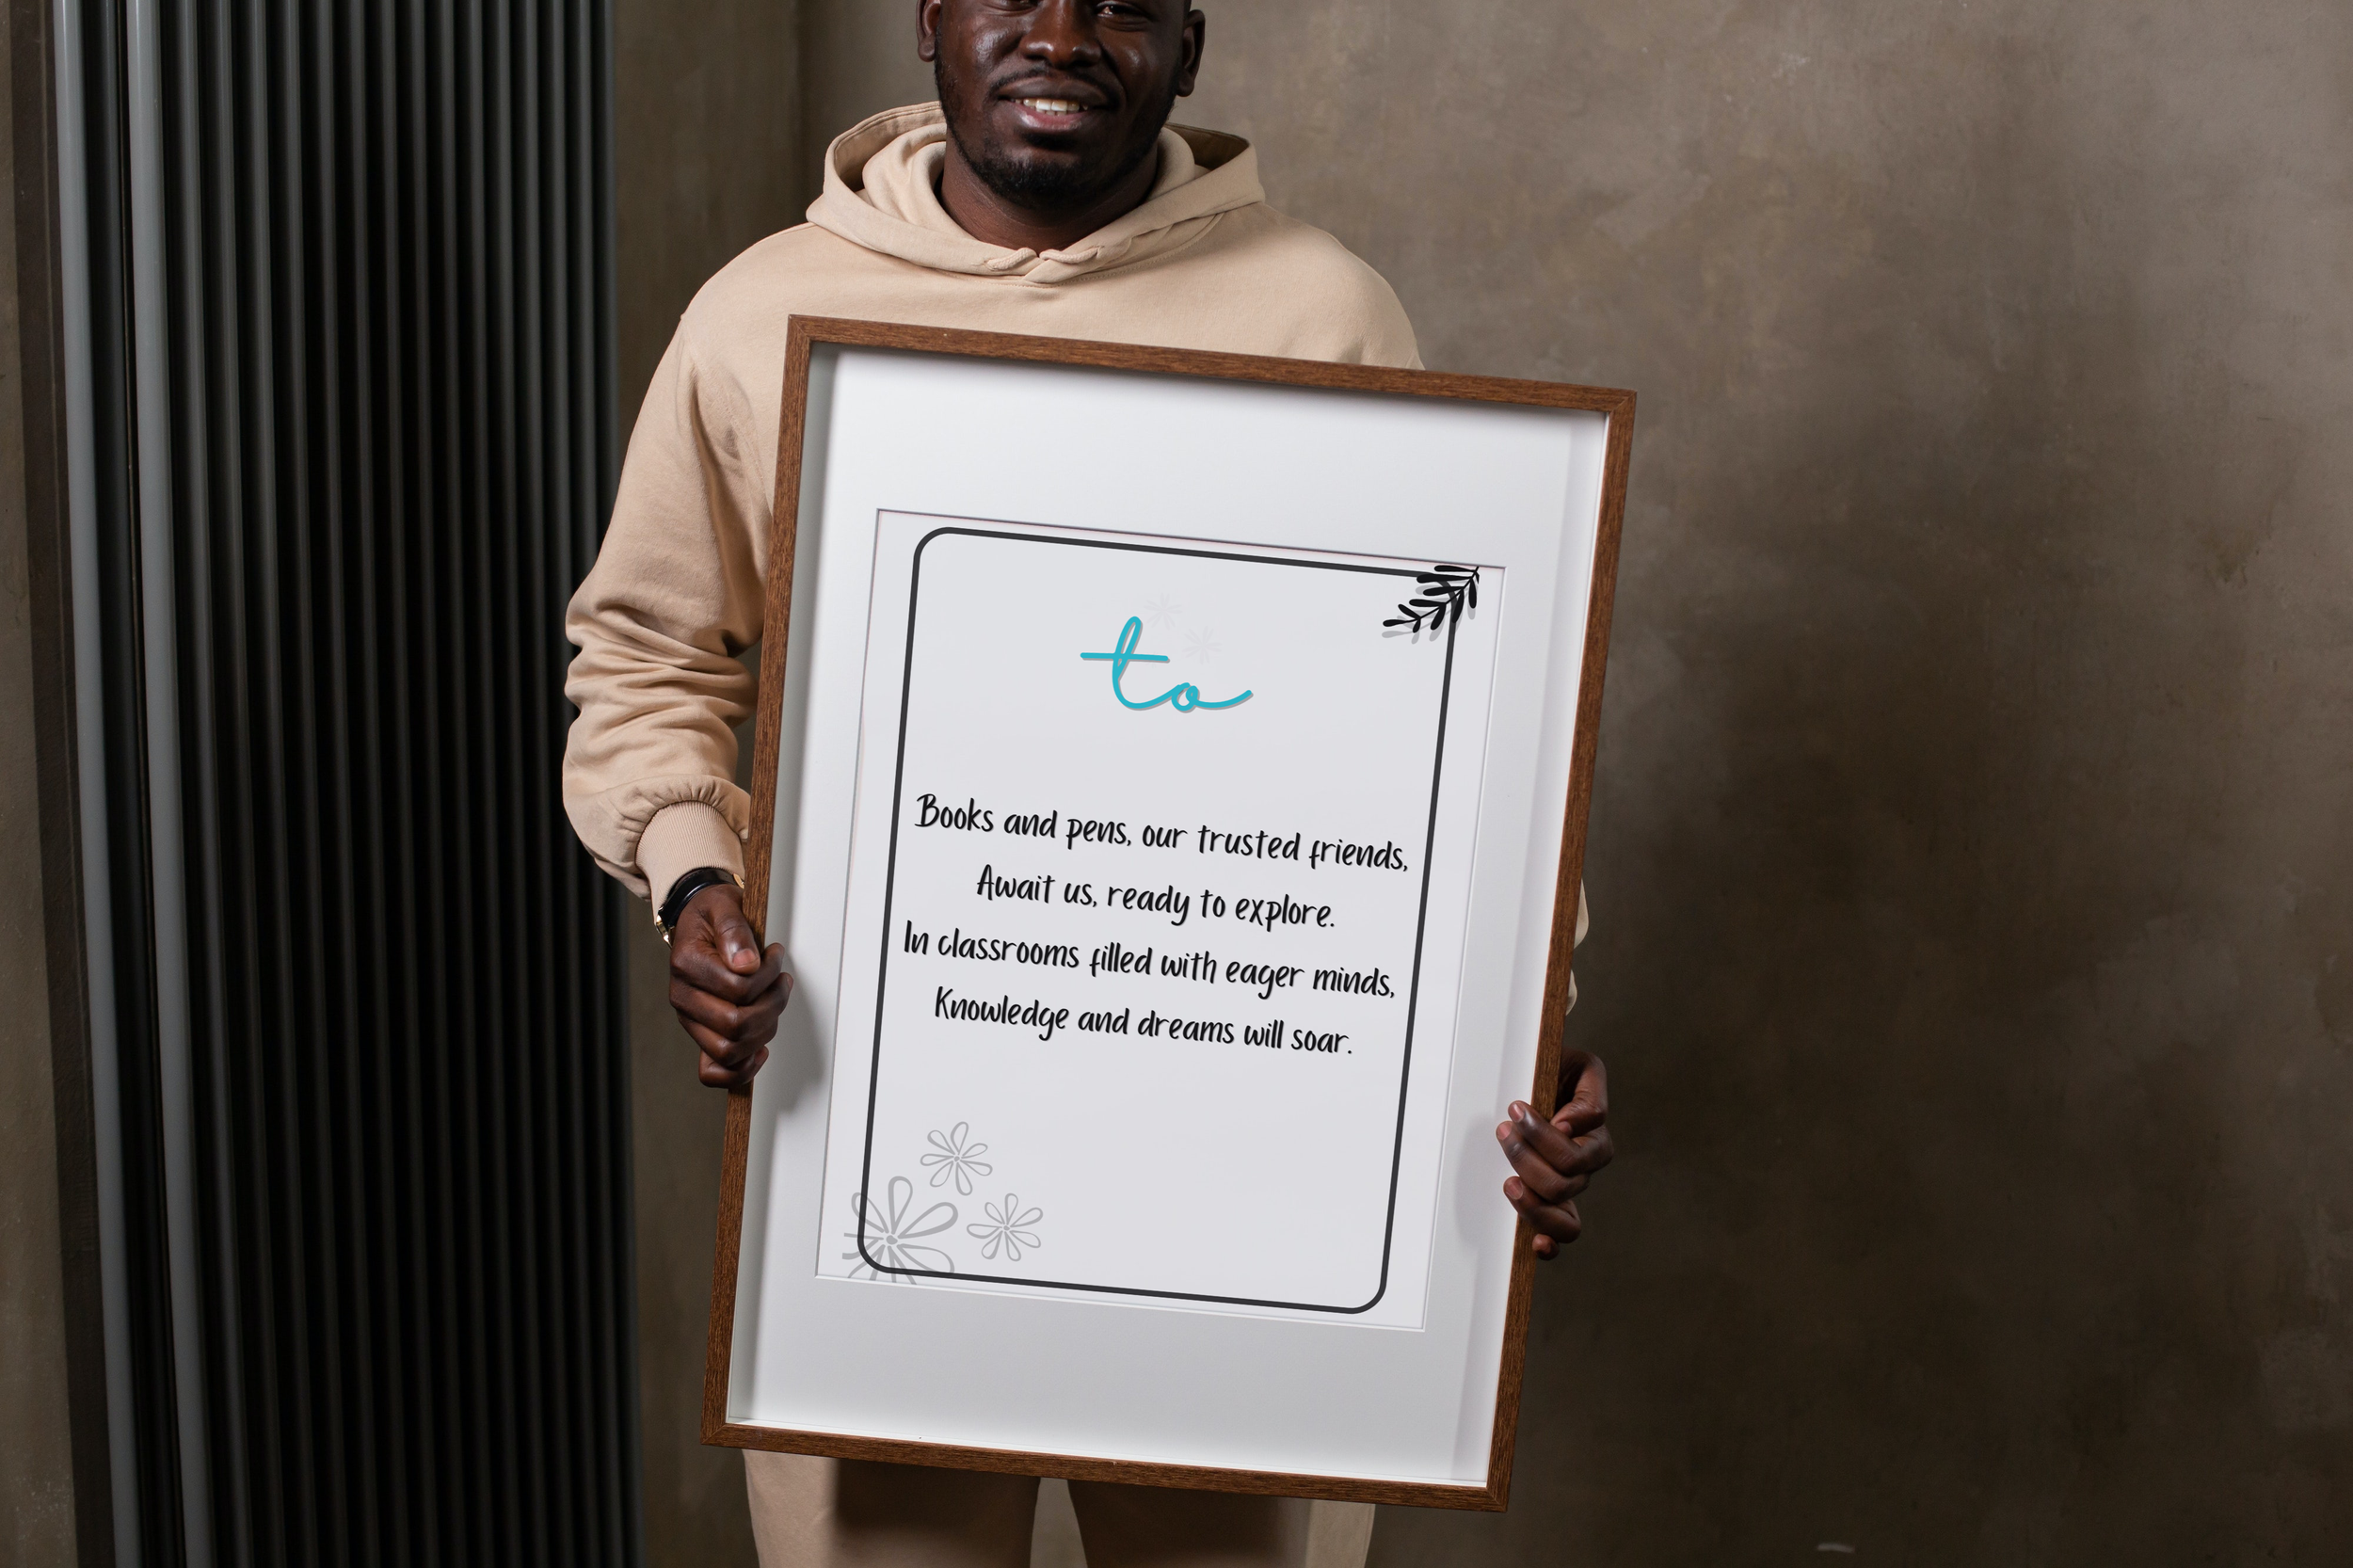 to
Books and pens, our trusted friends,
Await us, ready to explore.
In classrooms filled with eager minds,
Knowledge and dreams will soar.